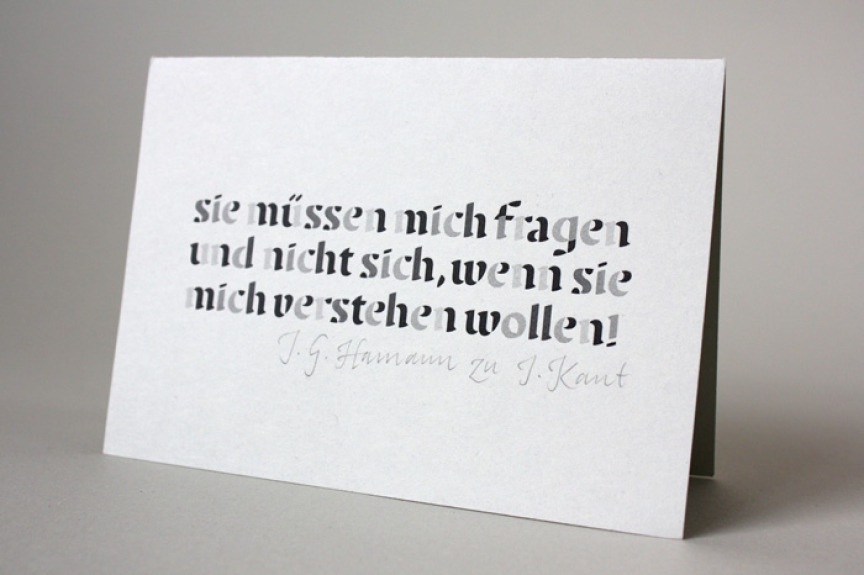 sie müssen mich fragen
und nicht sich, wenn sie
mich verstehen wollen!
J. G. Hamann zu J. Kant